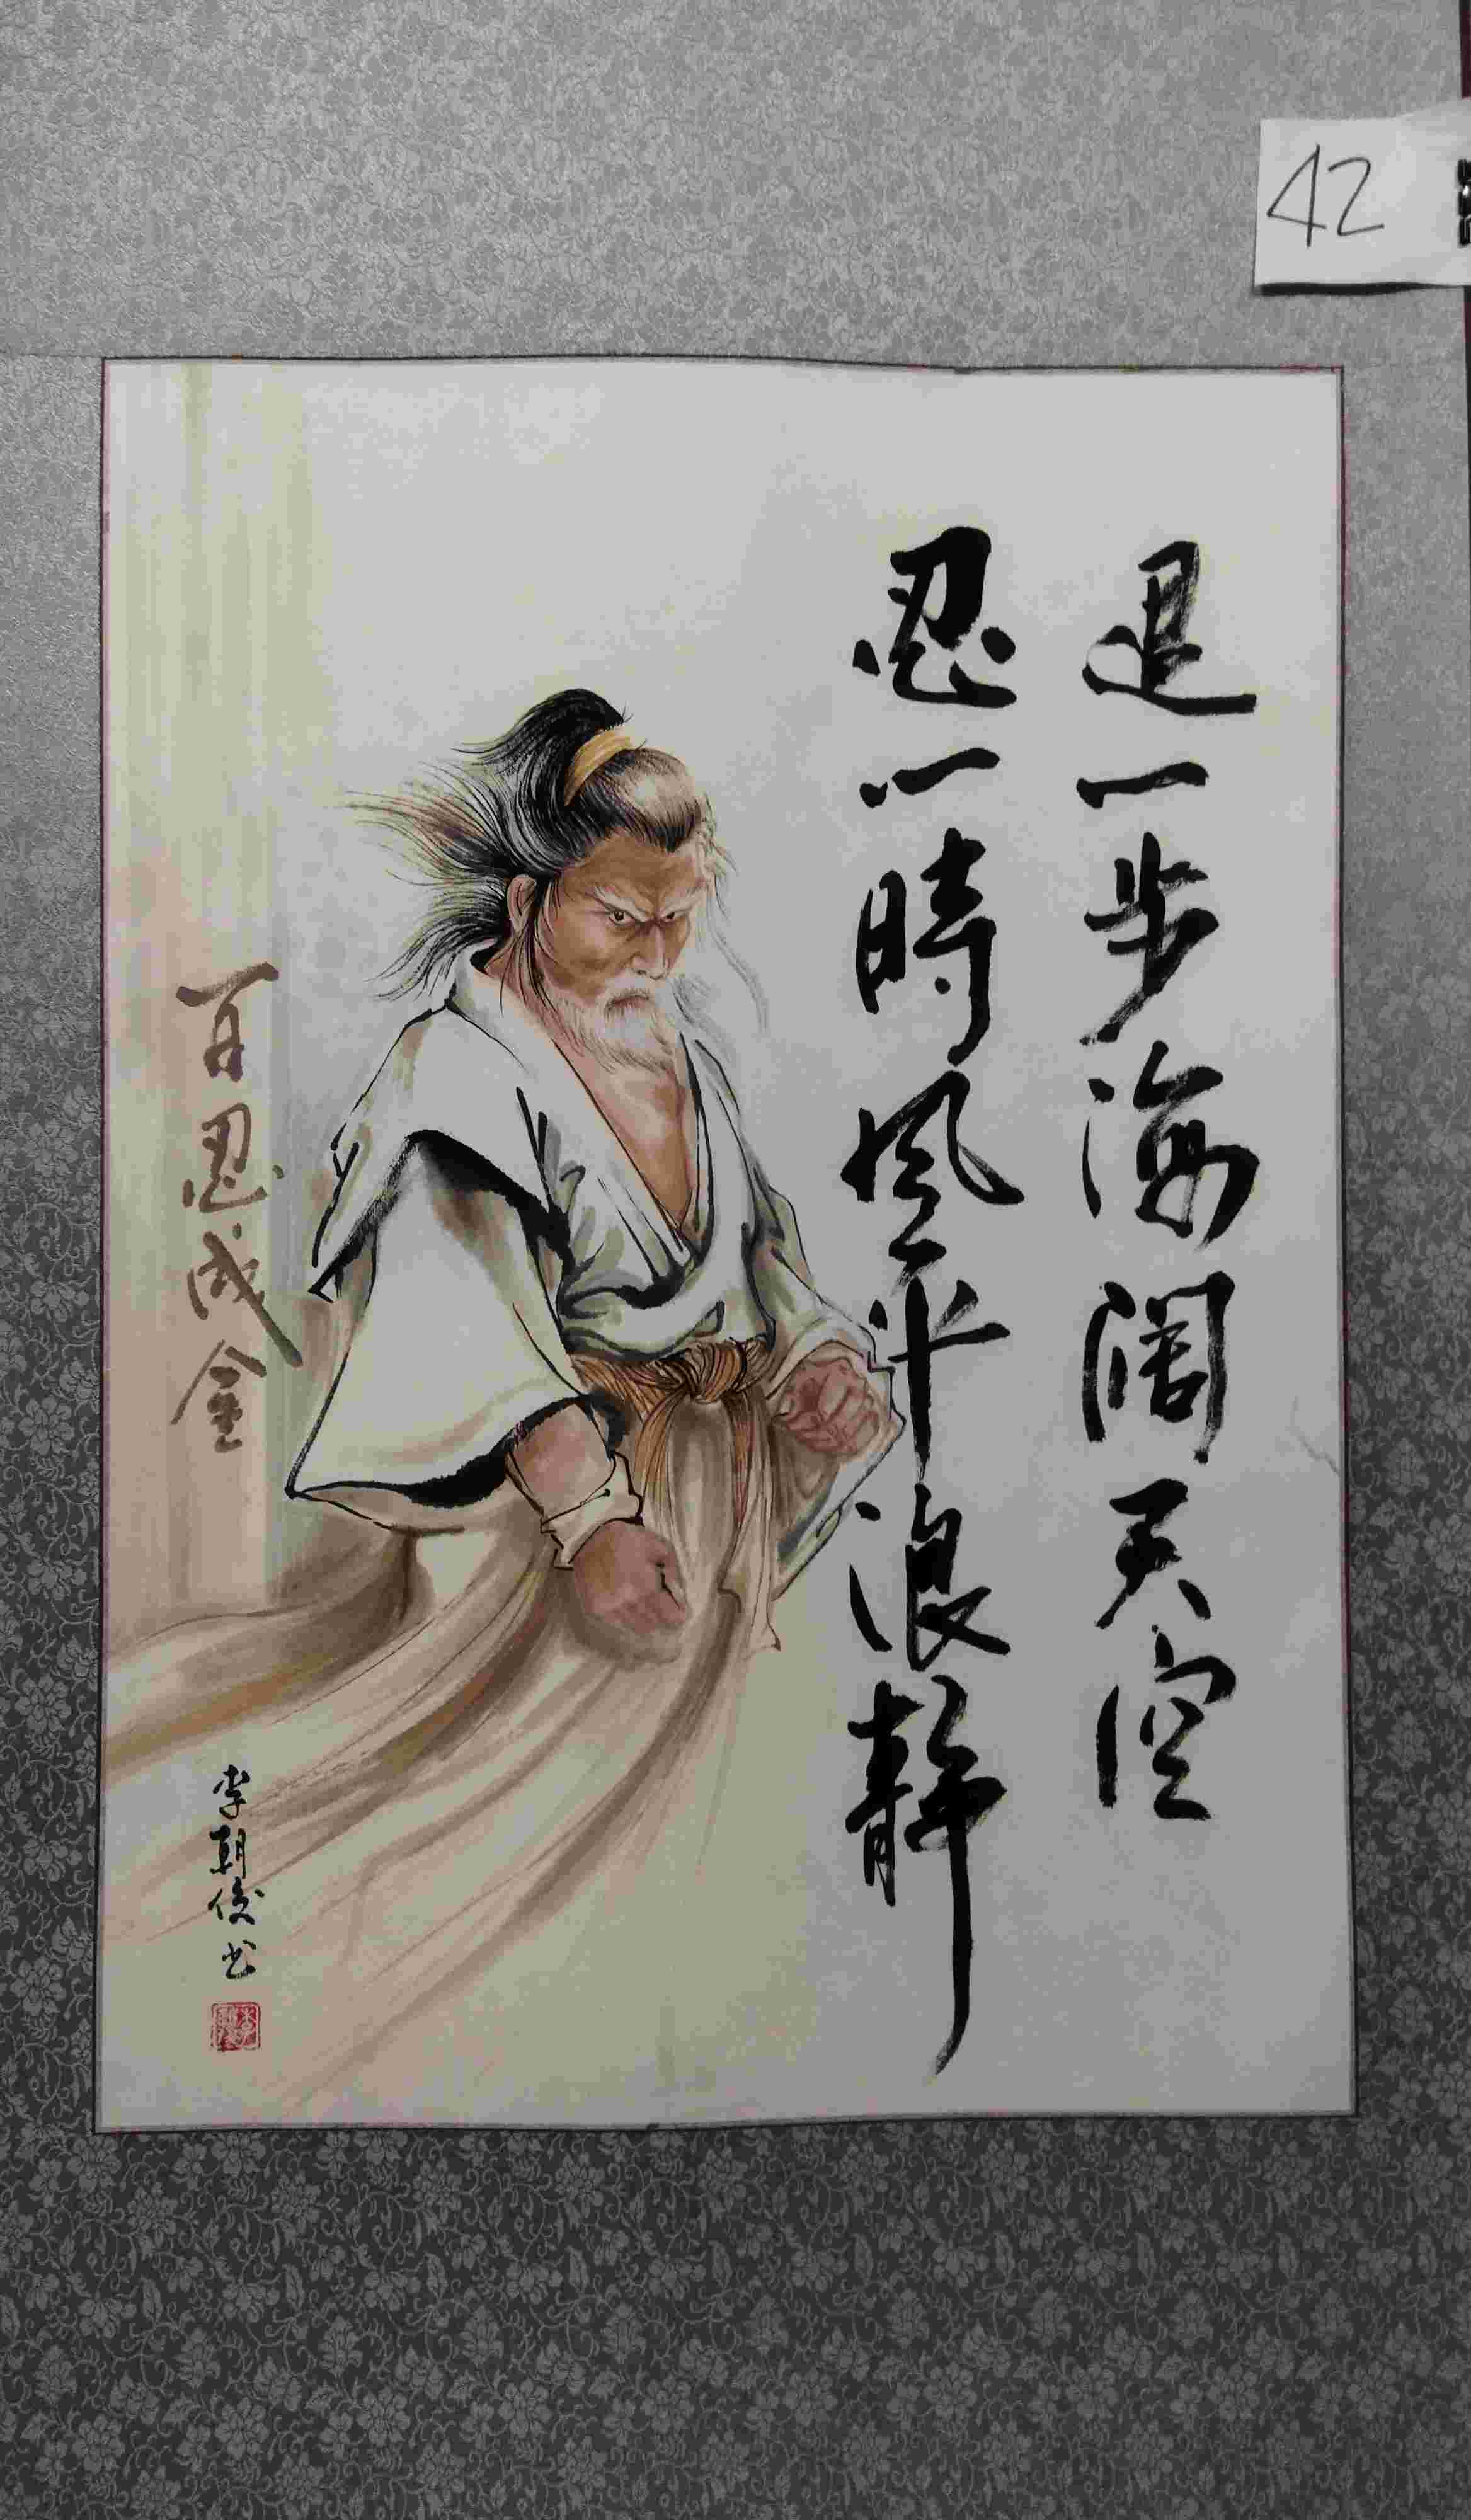 42
退一步海阔天空
忍一時風平浪靜
百忍成金
李朝俊书